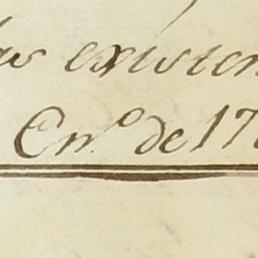 existen
En.º de 17